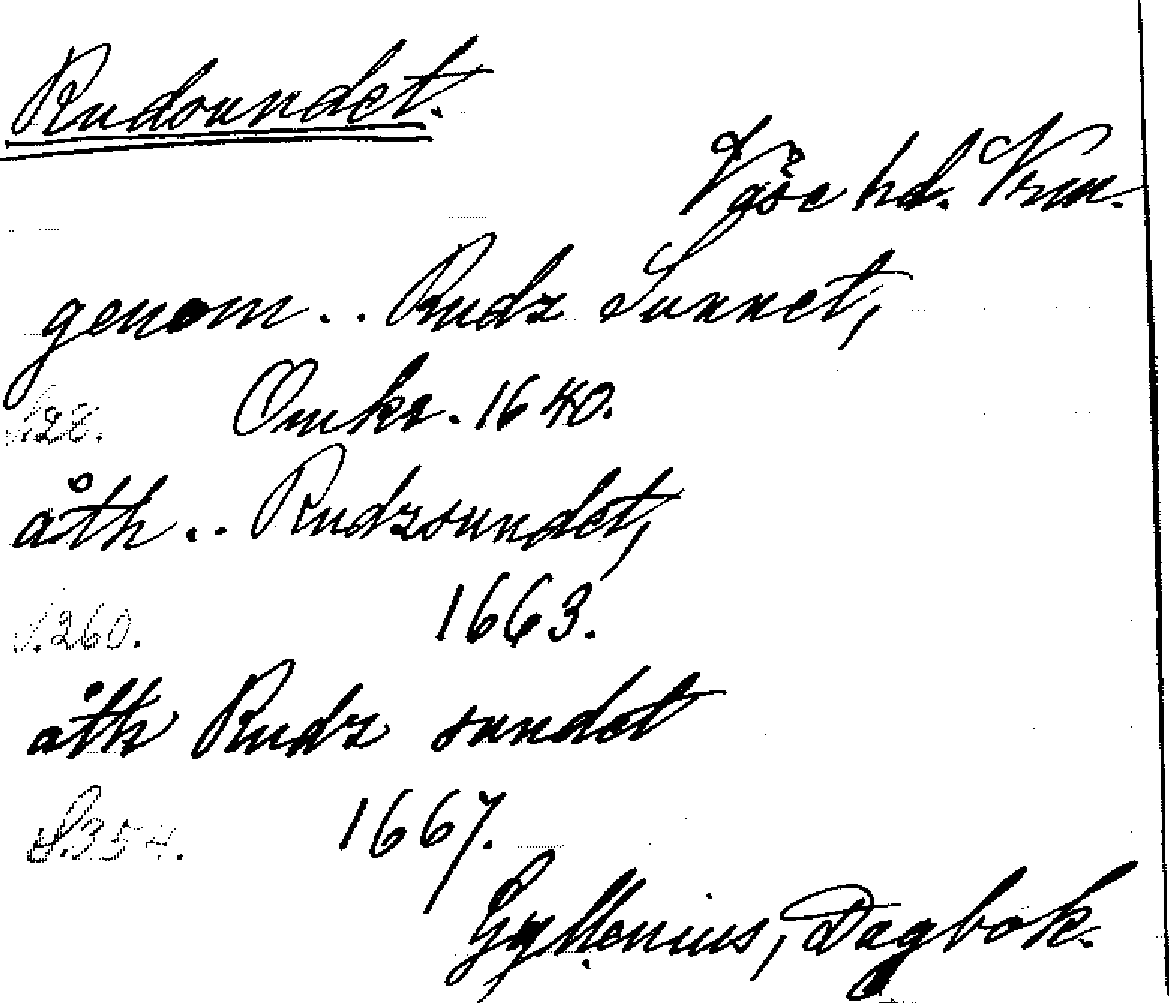 Rudsundet.
Väse hd. Vrm.
genom.. Rudz Sunnet,
S.28. Omkr. 1640.
åth.. Rudzsundet,
S.260. 1663.
åth Rudz sundet
S.354. 1667.
Gyllenius, Dagbok.